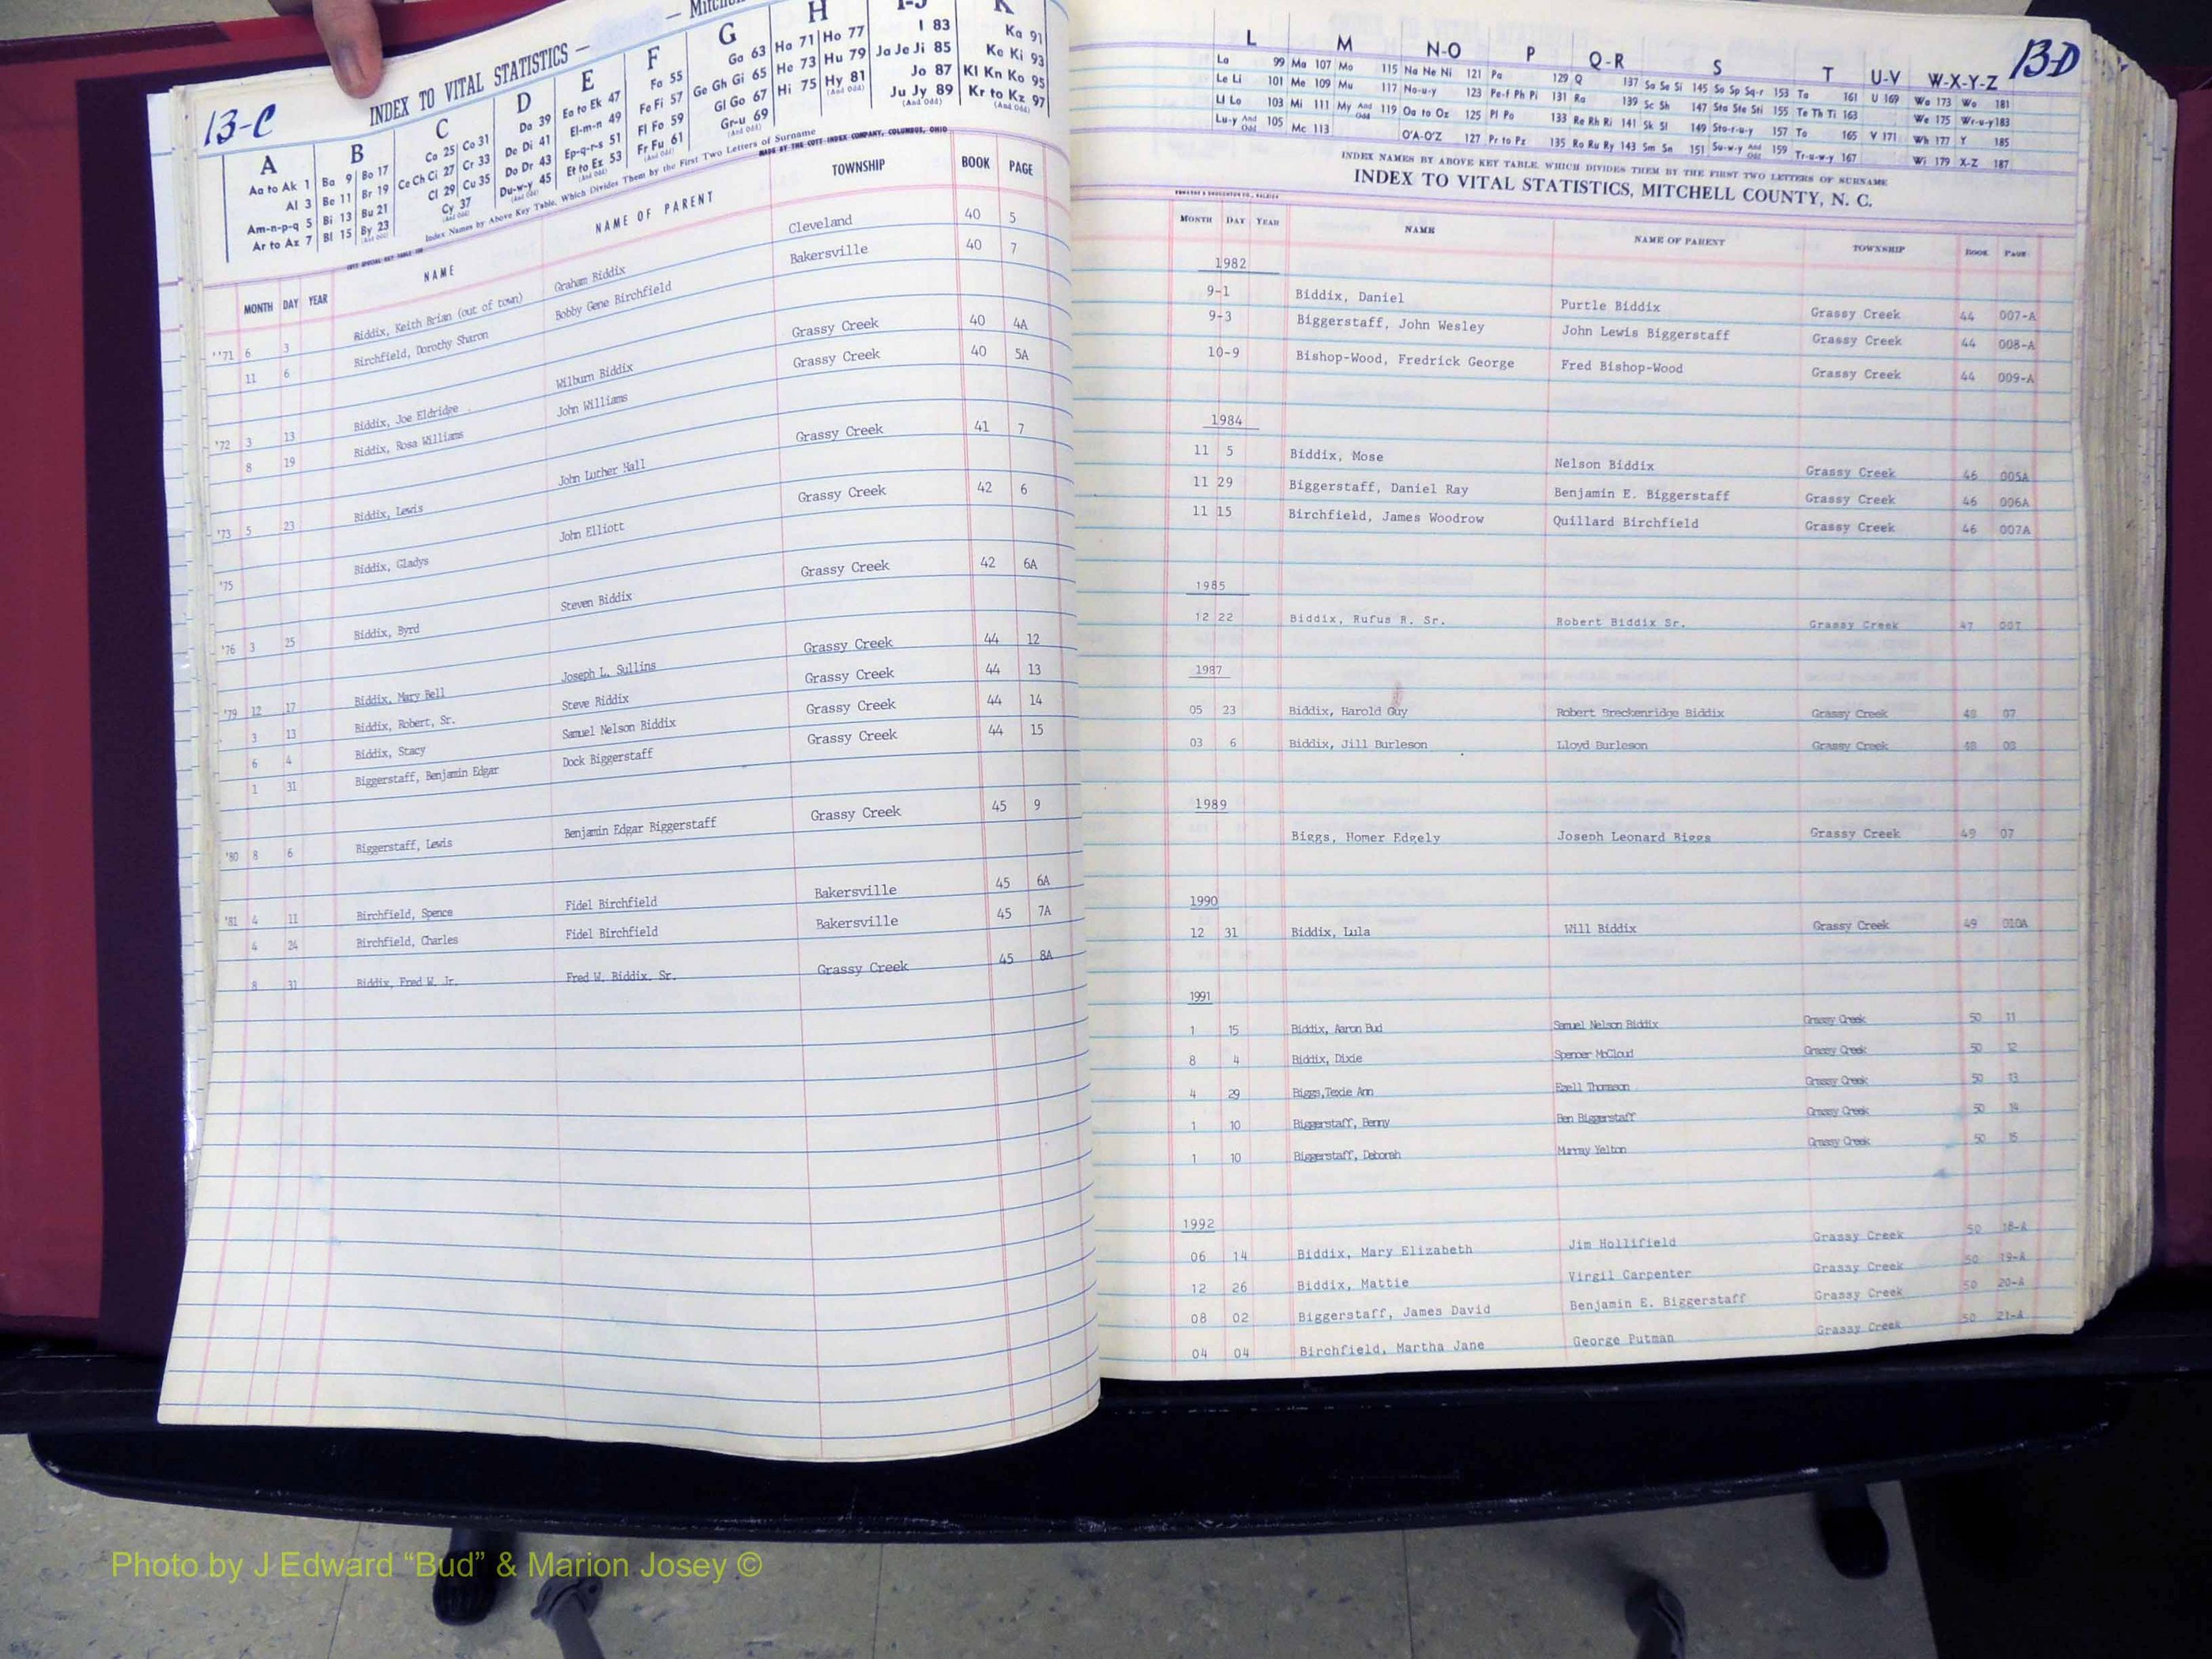 13-C
INDEX TO VITAL STATISTICS —
A B C D E F G H I-J K
Aa to Ak 1 Ba 9 Bo 17 Ca 25 Co 31 Da 39 Ea to Ek 47 Fa 55 Ga 63 Ha 71 Ho 77 I 83 Ka 91
Al 3 Be 11 Br 19 Ce Ch Ci 27 Cr 33 De Di 41 El-m-n 49 Fe Fi 57 Ge Gh Gi 65 He 73 Hu 79 Ja Je Ji 85 Ke Ki 93
Am-n-p-q 5 Bi 13 Bu 21 Cl 29 Cu 35 Do Dr 43 Ep-q-r-s 51 Fl Fo 59 Gl Go 67 Hi 75 Hy 81 (And Odd) Jo 87 Kl Kn Ko 95
Ar to Az 7 Bl 15 By 23 (And Odd) Cy 37 (And Odd) Du-w-y 45 (And Odd) Et to Ez 53 (And Odd) Fr Fu 61 (And Odd) Gr-u 69 (And Odd) Ju Jy 89 (And Odd) Kr to Kz 97 (And Odd)
Index Names by Above Key Table, Which Divides Them by the First Two Letters of Surname
MADE BY THE COTT INDEX COMPANY, COLUMBUS, OHIO
MONTH DAY YEAR NAME NAME OF PARENT TOWNSHIP BOOK PAGE
'71 6 3 Biddix, Keith Brian (out of town) Graham Biddix Cleveland 40 5
11 6 Birchfield, Dorothy Sharon Bobby Gene Birchfield Bakersville 40 7
'72 3 13 Biddix, Joe Eldridge Wilburn Biddix Grassy Creek 40 4A
8 19 Biddix, Rosa Williams John Williams Grassy Creek 40 5A
'73 5 23 Biddix, Lewis John Luther Hall Grassy Creek 41 7
'75 Biddix, Gladys John Elliott Grassy Creek 42 6
'76 3 25 Biddix, Byrd Steven Biddix Grassy Creek 42 6A
'79 12 17 Biddix, Mary Bell Joseph L. Sullins Grassy Creek 44 12
3 13 Biddix, Robert, Sr. Steve Biddix Grassy Creek 44 13
6 4 Biddix, Stacy Samuel Nelson Biddix Grassy Creek 44 14
1 31 Biggerstaff, Benjamin Edgar Dock Biggerstaff Grassy Creek 44 15
'80 8 6 Biggerstaff, Lewis Benjamin Edgar Biggerstaff Grassy Creek 45 9
'81 4 11 Birchfield, Spence Fidel Birchfield Bakersville 45 6A
4 24 Birchfield, Charles Fidel Birchfield Bakersville 45 7A
8 31 Biddix, Fred W. Jr. Fred W. Biddix, Sr. Grassy Creek 45 8A
13-D
L M N-O P Q-R S T U-V W-X-Y-Z
La 99 Ma 107 Mo 115 Na Ne Ni 121 Pa 129 Q 137 Sa Se Si 145 So Sp Sq-r 153 Ta 161 U 169 Wa 173 Wo 181
Le Li 101 Me 109 Mu 117 No-u-y 123 Pe-f Ph Pi 131 Ra 139 Sc Sh 147 Sta Ste Sti 155 Te Th Ti 163 We 175 Wr-u-y 183
Ll Lo 103 Mi 111 My And Odd 119 Oa to Oz 125 Pl Po 133 Re Rh Ri 141 Sk Sl 149 Sto-r-u-y 157 To 165 V 171 Wh 177 Y 185
Lu-y And Odd 105 Mc 113 O'A-O'Z 127 Pr to Pz 135 Ro Ru Ry 143 Sm Sn 151 Su-w-y And Odd 159 Tr-u-w-y 167 Wi 179 X-Z 187
INDEX NAMES BY ABOVE KEY TABLE, WHICH DIVIDES THEM BY THE FIRST TWO LETTERS OF SURNAME
INDEX TO VITAL STATISTICS, MITCHELL COUNTY, N. C.
MONTH DAY YEAR NAME NAME OF PARENT TOWNSHIP BOOK PAGE
1982
9-1 Biddix, Daniel Purtle Biddix Grassy Creek 44 007-A
9-3 Biggerstaff, John Wesley John Lewis Biggerstaff Grassy Creek 44 008-A
10-9 Bishop-Wood, Fredrick George Fred Bishop-Wood Grassy Creek 44 009-A
1984
11 5 Biddix, Mose Nelson Biddix Grassy Creek 46 005A
11 29 Biggerstaff, Daniel Ray Benjamin E. Biggerstaff Grassy Creek 46 006A
11 15 Birchfield, James Woodrow Quillard Birchfield Grassy Creek 46 007A
1985
12 22 Biddix, Rufus R. Sr. Robert Biddix Sr. Grassy Creek 47 007
1987
05 23 Biddix, Harold Guy Robert Breckenridge Biddix Grassy Creek 48 07
03 6 Biddix, Jill Burleson Lloyd Burleson Grassy Creek 48 08
1989
Biggs, Homer Edgely Joseph Leonard Biggs Grassy Creek 49 07
1990
12 31 Biddix, Lula Will Biddix Grassy Creek 49 010A
1991
1 15 Biddix, Aaron Bud Samuel Nelson Biddix Grassy Creek 50 11
8 4 Biddix, Dixie Spencer McCloud Grassy Creek 50 12
4 29 Biggs, Texie Ann Ezell Thomason Grassy Creek 50 13
1 10 Biggerstaff, Benny Ben Biggerstaff Grassy Creek 50 14
1 10 Biggerstaff, Deborah Murray Yelton Grassy Creek 50 15
1992
06 14 Biddix, Mary Elizabeth Jim Hollifield Grassy Creek 50 18-A
12 26 Biddix, Mattie Virgil Carpenter Grassy Creek 50 19-A
08 02 Biggerstaff, James David Benjamin E. Biggerstaff Grassy Creek 50 20-A
04 04 Birchfield, Martha Jane George Putman Grassy Creek 50 21-A
Photo by J Edward “Bud” & Marion Josey ©